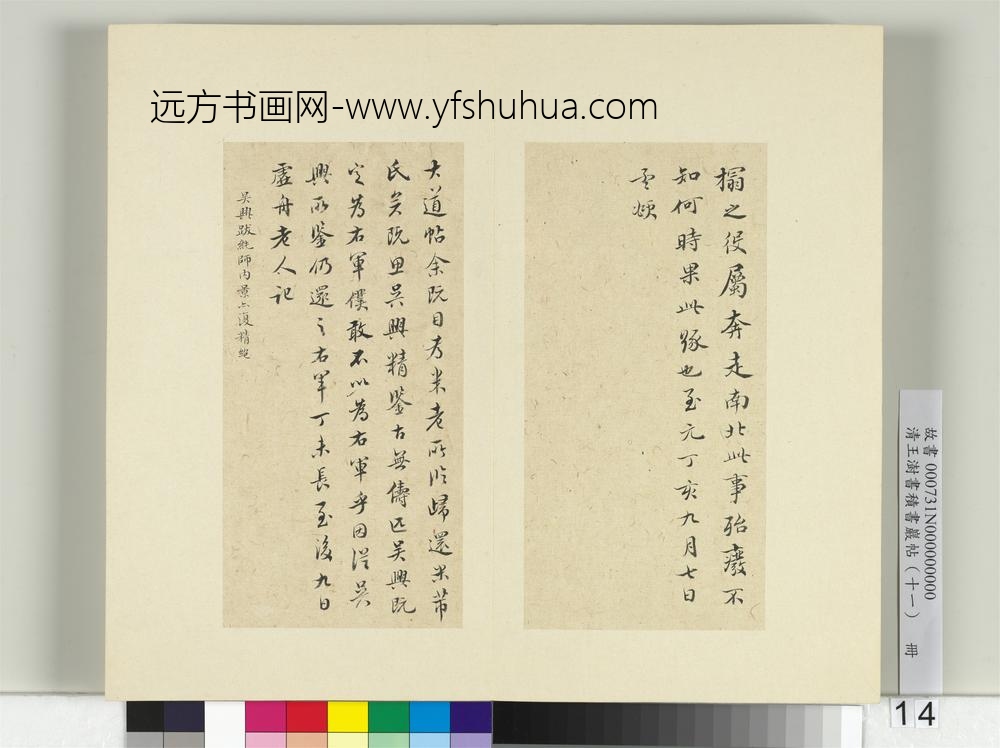 远方书画网-www.yfshuhua.com
搨之役屬奔走南北此事殆廢不
知何時果此緣也至元丁亥九月七日
孟頫
大道帖余既目為米老所臨歸還米芾
氏矣既思吳興精鑒古無儔匹吳興既
定為右軍僕敢不以為右軍乎因從吳
興所鑒仍還之右軍丁未長至後九日
虛舟老人記
吳興跋純師內景亦復精絕
故書 000731N000000000
清王澍書積書巖帖(十一) 冊
14